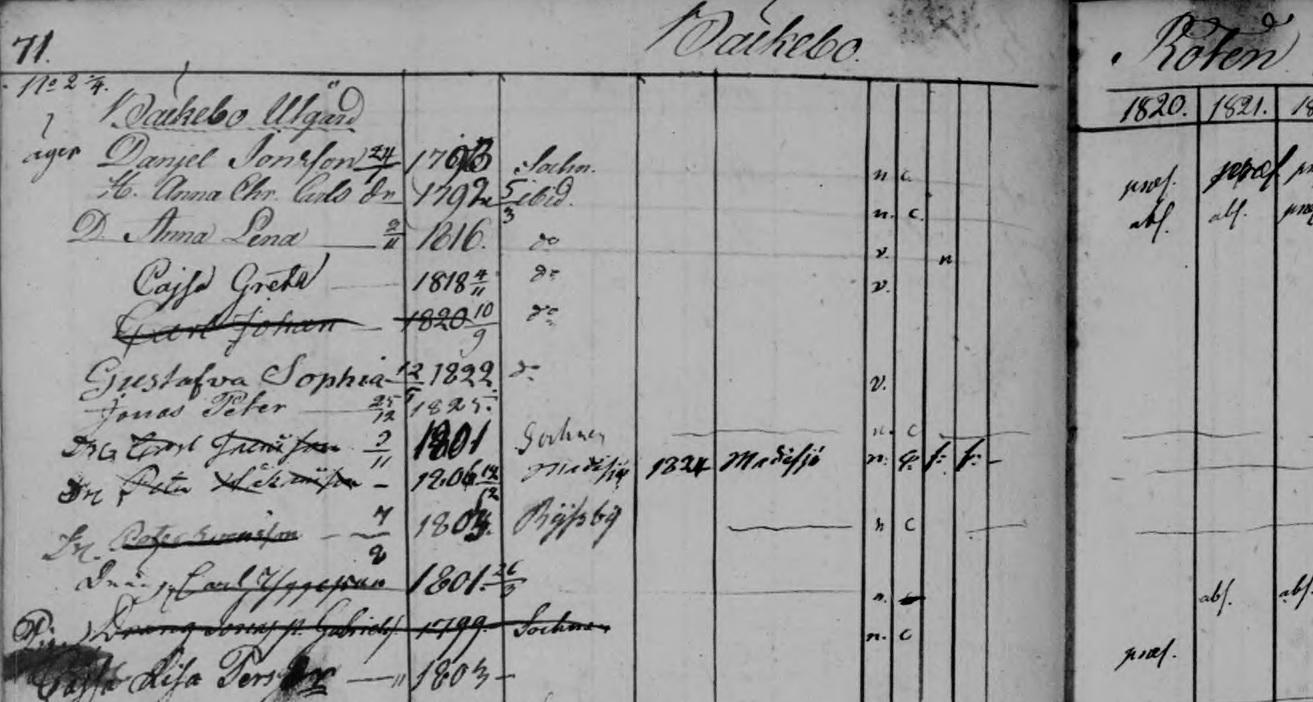 71. Bäckebo. Roten
No 2 1/4. 1820. 1821. 18
Bäckebo Utgård
äger Danjel Jonsson 24/ 179 Sochn. n. c. præs. præs
H. Anna Chr. Carls dr 1792 5/3 ibid. n. c. abs. abs.
D. Anna Lena 2/11 1816. do v. n
Cajsa Greta 1818 4/11 do v.
Carl Johan 1820 10/9 do
Gustafva Sophia 12/ 1822 do v.
Jonas Peter 25/12 1825.
Carl 2/11 1801 Sochnen n. c
Dr. Peter 1806 12/12 Madesjö 1824 Madesjö n. f: f:
Dr. Peter Svensson 7/2 180 Ryssby n c
Dräng Carl 1801. 26/3 n. abs. abs.
Dräng Jonas P. Gabriels. 1799. Sochnen n. c
Cajsa Lisa Pers dr 1803 præs.